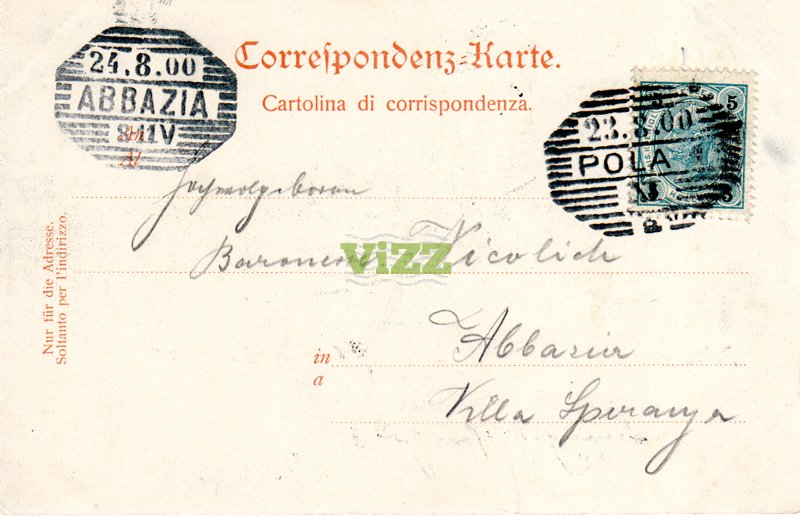 24.8.00
ABBAZIA
8-11V
Correspondenz-Karte.
Cartolina di corrispondenza.
5 5
23.8.00
POLA
An
Al
Hochwolgeboren
Baronesse Nicolich
ViZZ
in
a
Abbazia
Villa Speranza
Nur für die Adresse.
Soltanto per l'indirizzo.